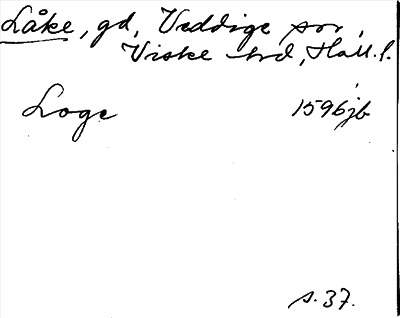 Låke, gd, Veddige sn,
Viske hrd, Hall. l.
Loge 1596 jb
s. 37.